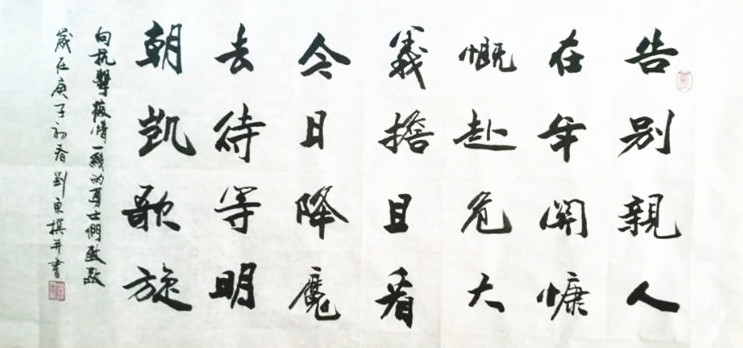 告別親人
在年關慷
慨赴危大
義擔且看
今日降魔
去待等明
朝凱歌旋
向抗擊疫情一線的勇士們致敬
歲在庚子初春劉東撰并書